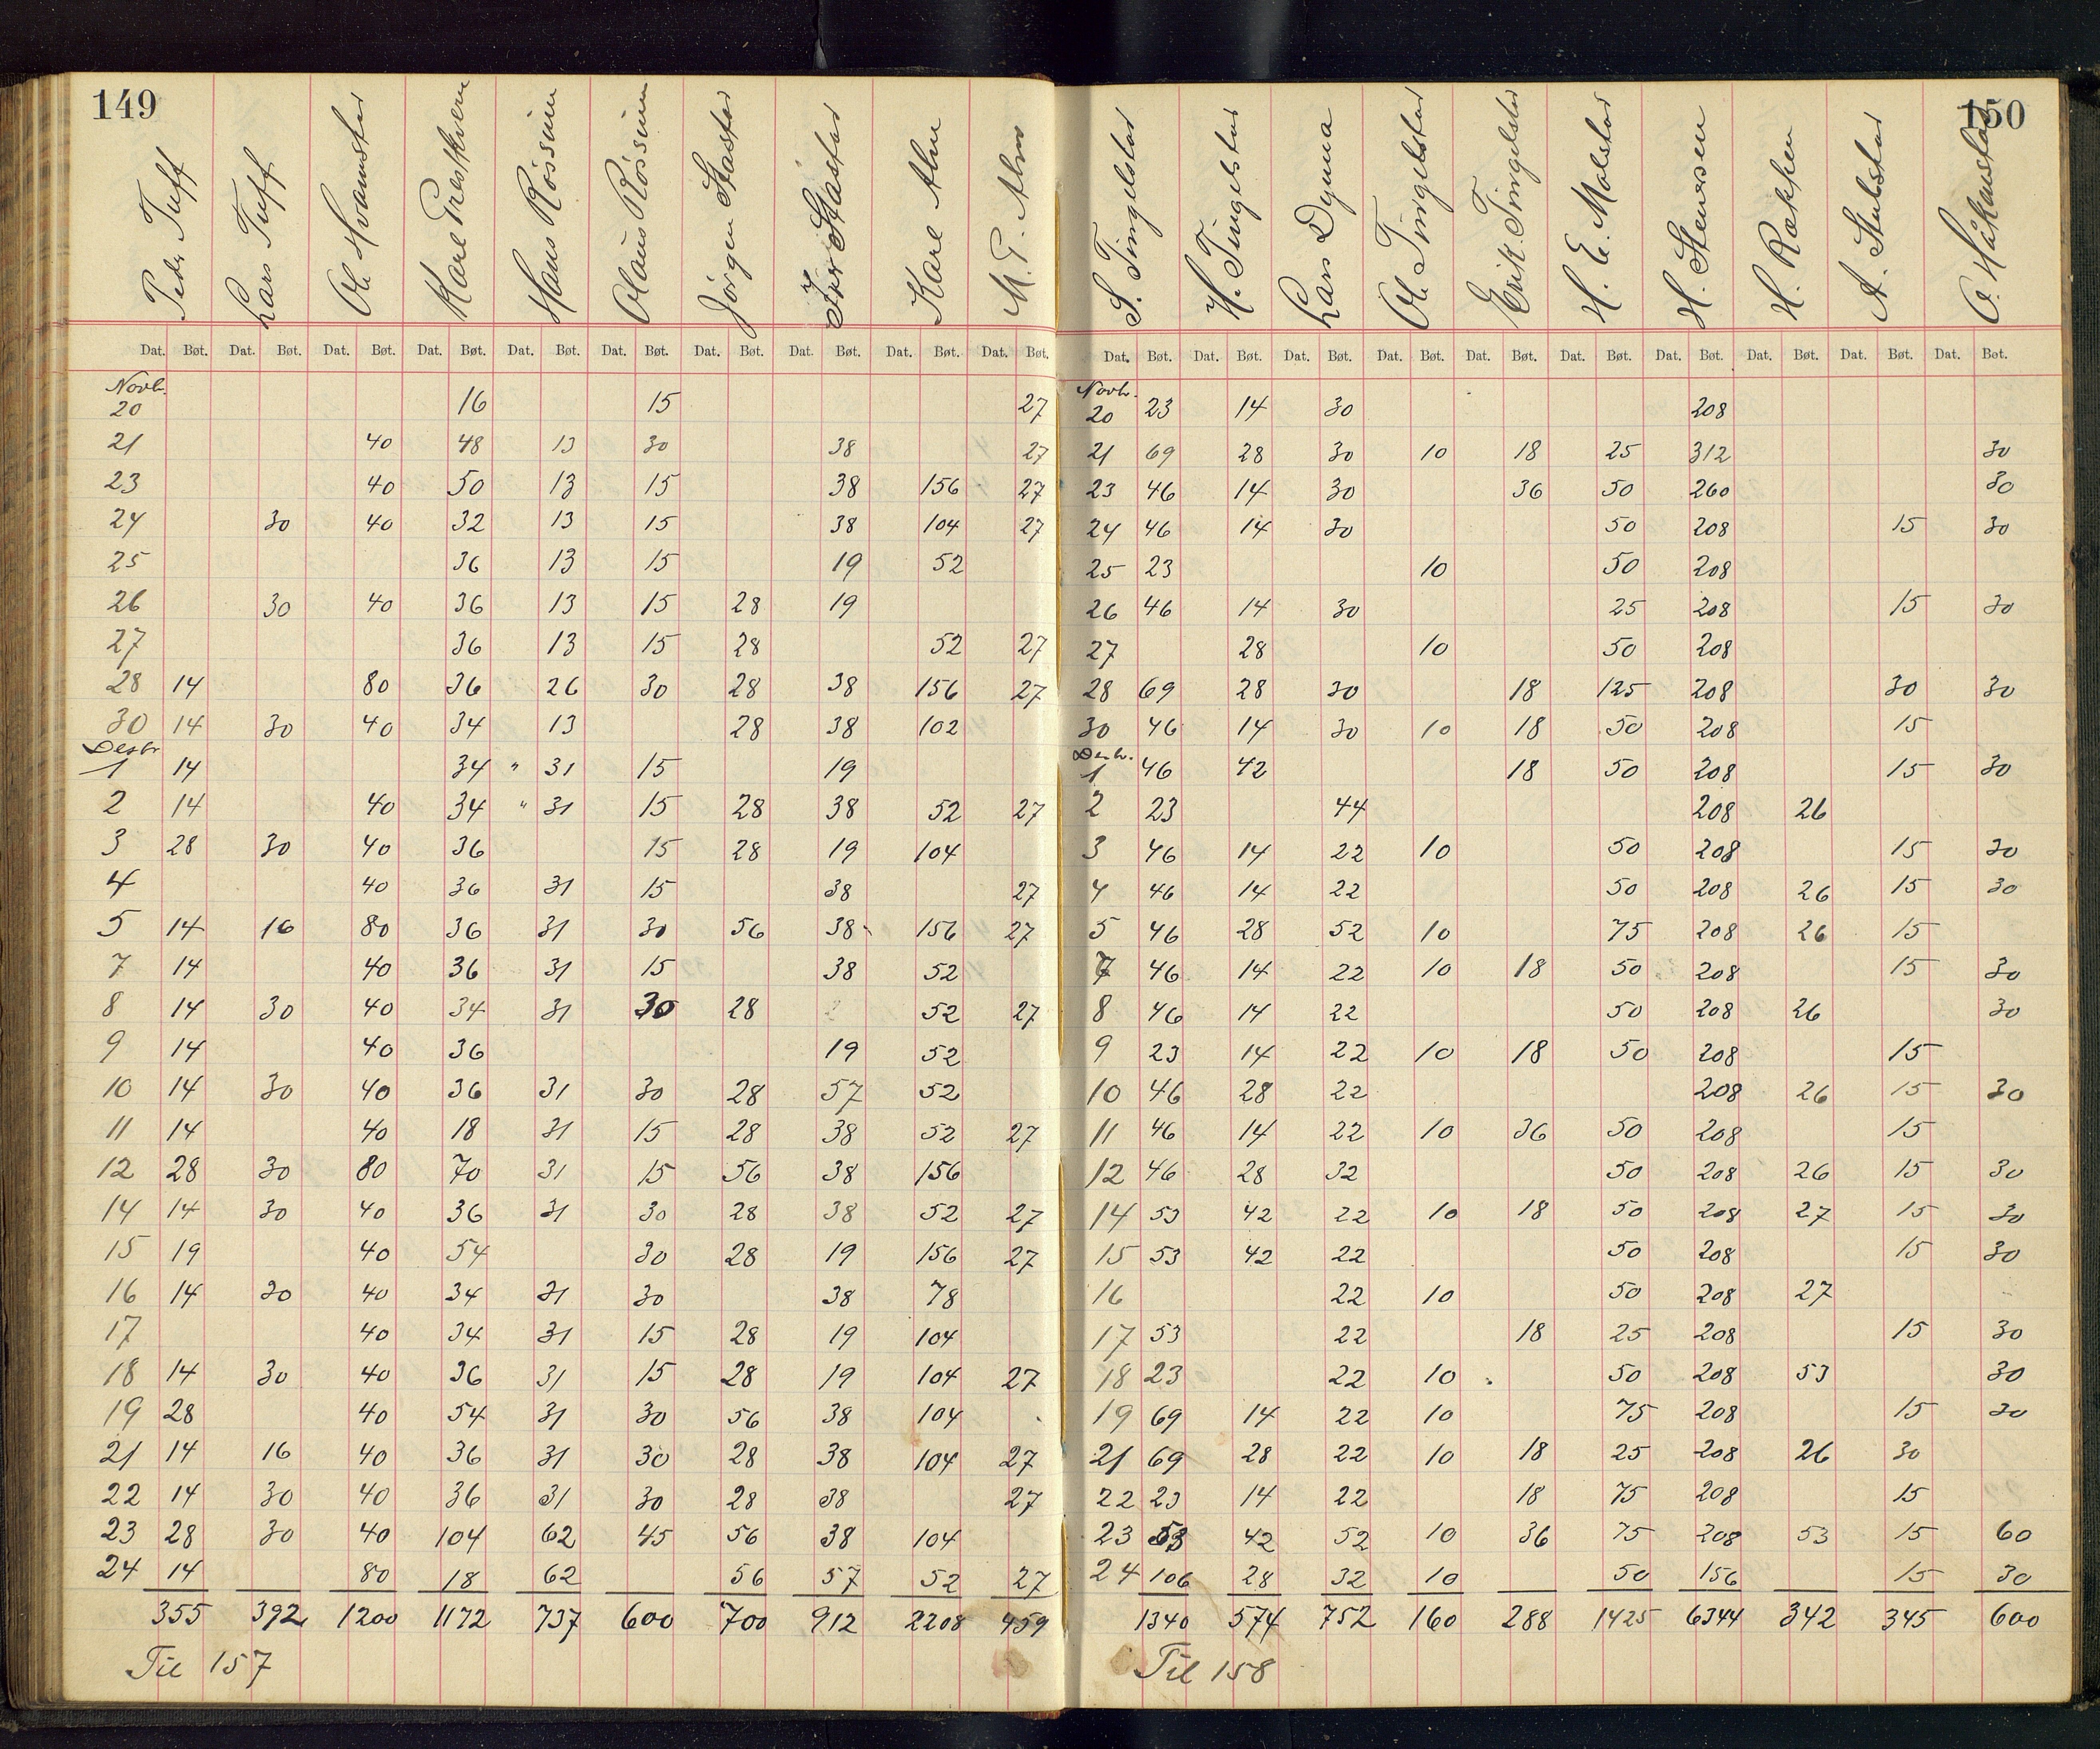 149
Peder Tuff Lars Tuff Ole Hvamstad Karl Præstkvern Hans Røssum Olaus Røssum Jörgen Stastad Iver Stastad Karl Alm M. P. Alm
Dat. Bøt. Dat. Bøt. Dat. Bøt. Dat. Bøt. Dat. Bøt. Dat. Bøt. Dat. Bøt. Dat. Bøt. Dat. Bøt. Dat. Bøt.
Novb.
20 16 15 27
21 40 48 13 30 38 27
23 40 50 13 15 38 156 27
24 30 40 32 13 15 38 104 27
25 36 13 15 19 52
26 30 40 36 13 15 28 19
27 36 13 15 28 52 27
28 14 80 36 26 30 28 38 156 27
30 14 30 40 34 13 28 38 102
Desbr
1 14 34 " 31 15 19
2 14 40 34 " 31 15 28 38 52 27
3 28 30 40 36 15 28 19 104
4 40 36 31 15 38 27
5 14 16 80 36 31 30 56 38 156 27
7 14 40 36 31 15 38 52
8 14 30 40 34 31 30 28 52 27
9 14 40 36 19 52
10 14 30 40 36 31 30 28 57 52
11 14 40 18 31 15 28 38 52 27
12 28 30 80 70 31 15 56 38 156
14 14 30 40 36 31 30 28 38 52 27
15 19 40 54 30 28 19 156 27
16 14 30 40 34 31 30 38 78
17 40 34 31 15 28 19 104
18 14 30 40 36 31 15 28 19 104 27
19 28 40 54 31 30 56 38 104
21 14 16 40 36 31 30 28 38 104 27
22 14 30 40 36 31 30 28 38 27
23 28 30 40 104 62 45 56 38 104
24 14 80 18 62 56 57 52 27
355 392 1200 1172 737 600 700 912 2208 459
Til 157
150
S. Tingelstad H. Tingelstad Lars Dynna Ole Tingelstad Erik Tingelstad H. E. Molstad H. Stenersen H. Rækken A. Stubstad O. Håkenstad
Dat. Bøt. Dat. Bøt. Dat. Bøt. Dat. Bøt. Dat. Bøt. Dat. Bøt. Dat. Bøt. Dat. Bøt. Dat. Bøt. Dat. Bøt.
Novbr.
20 23 14 30 208
21 69 28 30 10 18 25 312 30
23 46 14 30 36 50 260 30
24 46 14 30 50 208 15 30
25 23 10 50 208
26 46 14 30 25 208 15 30
27 28 10 50 208
28 69 28 30 18 125 208 30 30
30 46 14 30 10 18 50 208 15
Desbr.
1 46 42 18 50 208 15 30
2 23 44 208 26
3 46 14 22 10 50 208 15 30
4 46 14 22 50 208 26 15 30
5 46 28 52 10 75 208 26 15
7 46 14 22 10 18 50 208 15 30
8 46 14 22 50 208 26 30
9 23 14 22 10 18 50 208 15
10 46 28 22 208 26 15 30
11 46 14 22 10 36 50 208 15
12 46 28 32 50 208 26 15 30
14 53 42 22 10 18 50 208 27 15 30
15 53 42 22 50 208 15 30
16 22 10 50 208 27
17 53 22 18 25 208 15 30
18 23 22 10 50 208 53 30
19 69 14 22 10 75 208 15 30
21 69 28 22 10 18 25 208 26 30
22 23 14 22 18 75 208 15
23 53 42 52 10 36 75 208 53 15 60
24 106 28 32 10 50 156 15 30
1340 574 752 160 288 1425 6344 342 345 600
Til 158